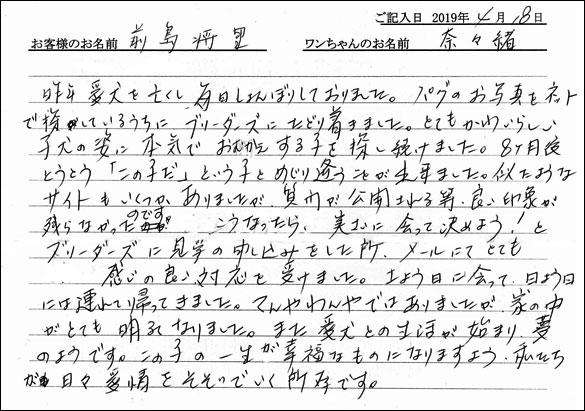 ご記入日 2019年4月18日
お客様のお名前 前島将里 ワンちゃんのお名前 奈々緒
昨年愛犬を亡くし毎日しょんぼりしておりました。パグのお写真をネット
で探しているうちにブリーダーズにたどり着きました。とてもかわいらしい
子犬の姿に本気でおむかえする子を探し続けました。8ヶ月後
とうとう「この子だ」という子とめぐり逢うことが出来ました。似たような
サイトもいくつかありましたが、質問が公開される等、良い印象が
残らなかったのですが こうなったら、実さいに会って決めよう!と
ブリーダーズに見学の申し込みをした所、メールにてとても
感じの良い対応を受けました。土よう日に会って、日よう日
には連れて帰ってきました。てんやわんやではありましたが、家の中
がとても明るくなりました。また愛犬との生活が始まり、夢
のようです。この子の一生が幸福なものになりますよう、私たち
が日々愛情をそそいでいく所存です。